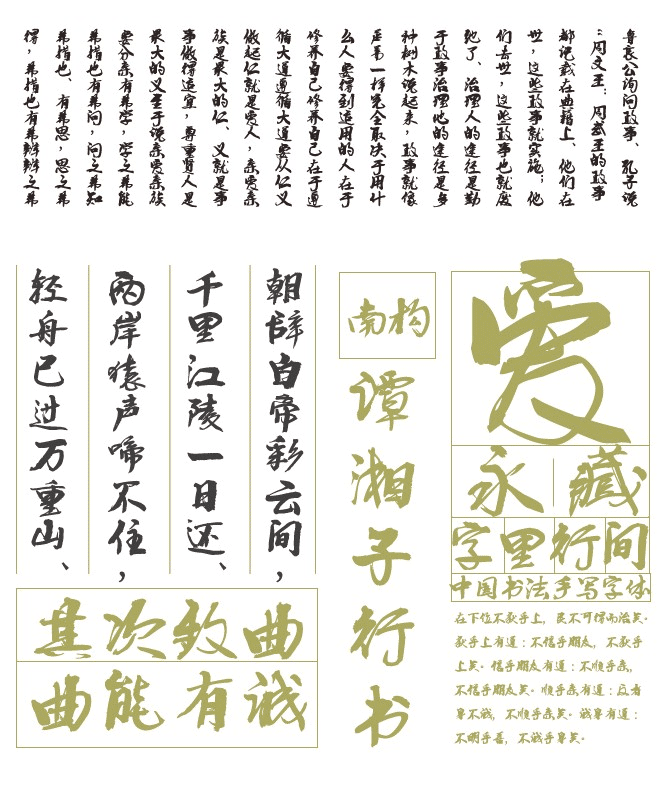 鲁哀公询问政事、孔子说
：周文王；周武王的政事
都记载在典籍上、他们在
世，这些政事就实施；他
们去世，这些政事也就废
弛了、治理人的途径是勤
于政事治理他的途径是多
种树木说起来，政事就像
芦苇一样完全取决于用什
么人要得到适用的人在于
修养自己修养自己在于遵
循大道遵循大道要从仁义
做起仁就是爱人，亲爱亲
族是最大的仁、义就是事
事做得适宜，尊重贤人是
最大的义至于说亲爱亲族
要分亲有弗学，学之弗能
弗措也有弗问，问之弗知
弗措也、有弗思，思之弗
得，弗措也有弗辨辨之弗
朝辞白帝彩云间，
千里江陵一日还、
两岸猿声啼不住，
轻舟已过万重山、
其次致曲
曲能有诚
南构
谭湘子行书
爱
永藏
字里行间
中国书法手写字体
在下位不获乎上，民不可得而治矣。
获乎上有道：不信乎朋友，不获乎
上矣。信乎朋友有道：不顺乎亲，
不信乎朋友矣。顺乎亲有道：反诸
身不诚，不顺乎亲矣。诚身有道：
不明乎善，不诚乎身矣。